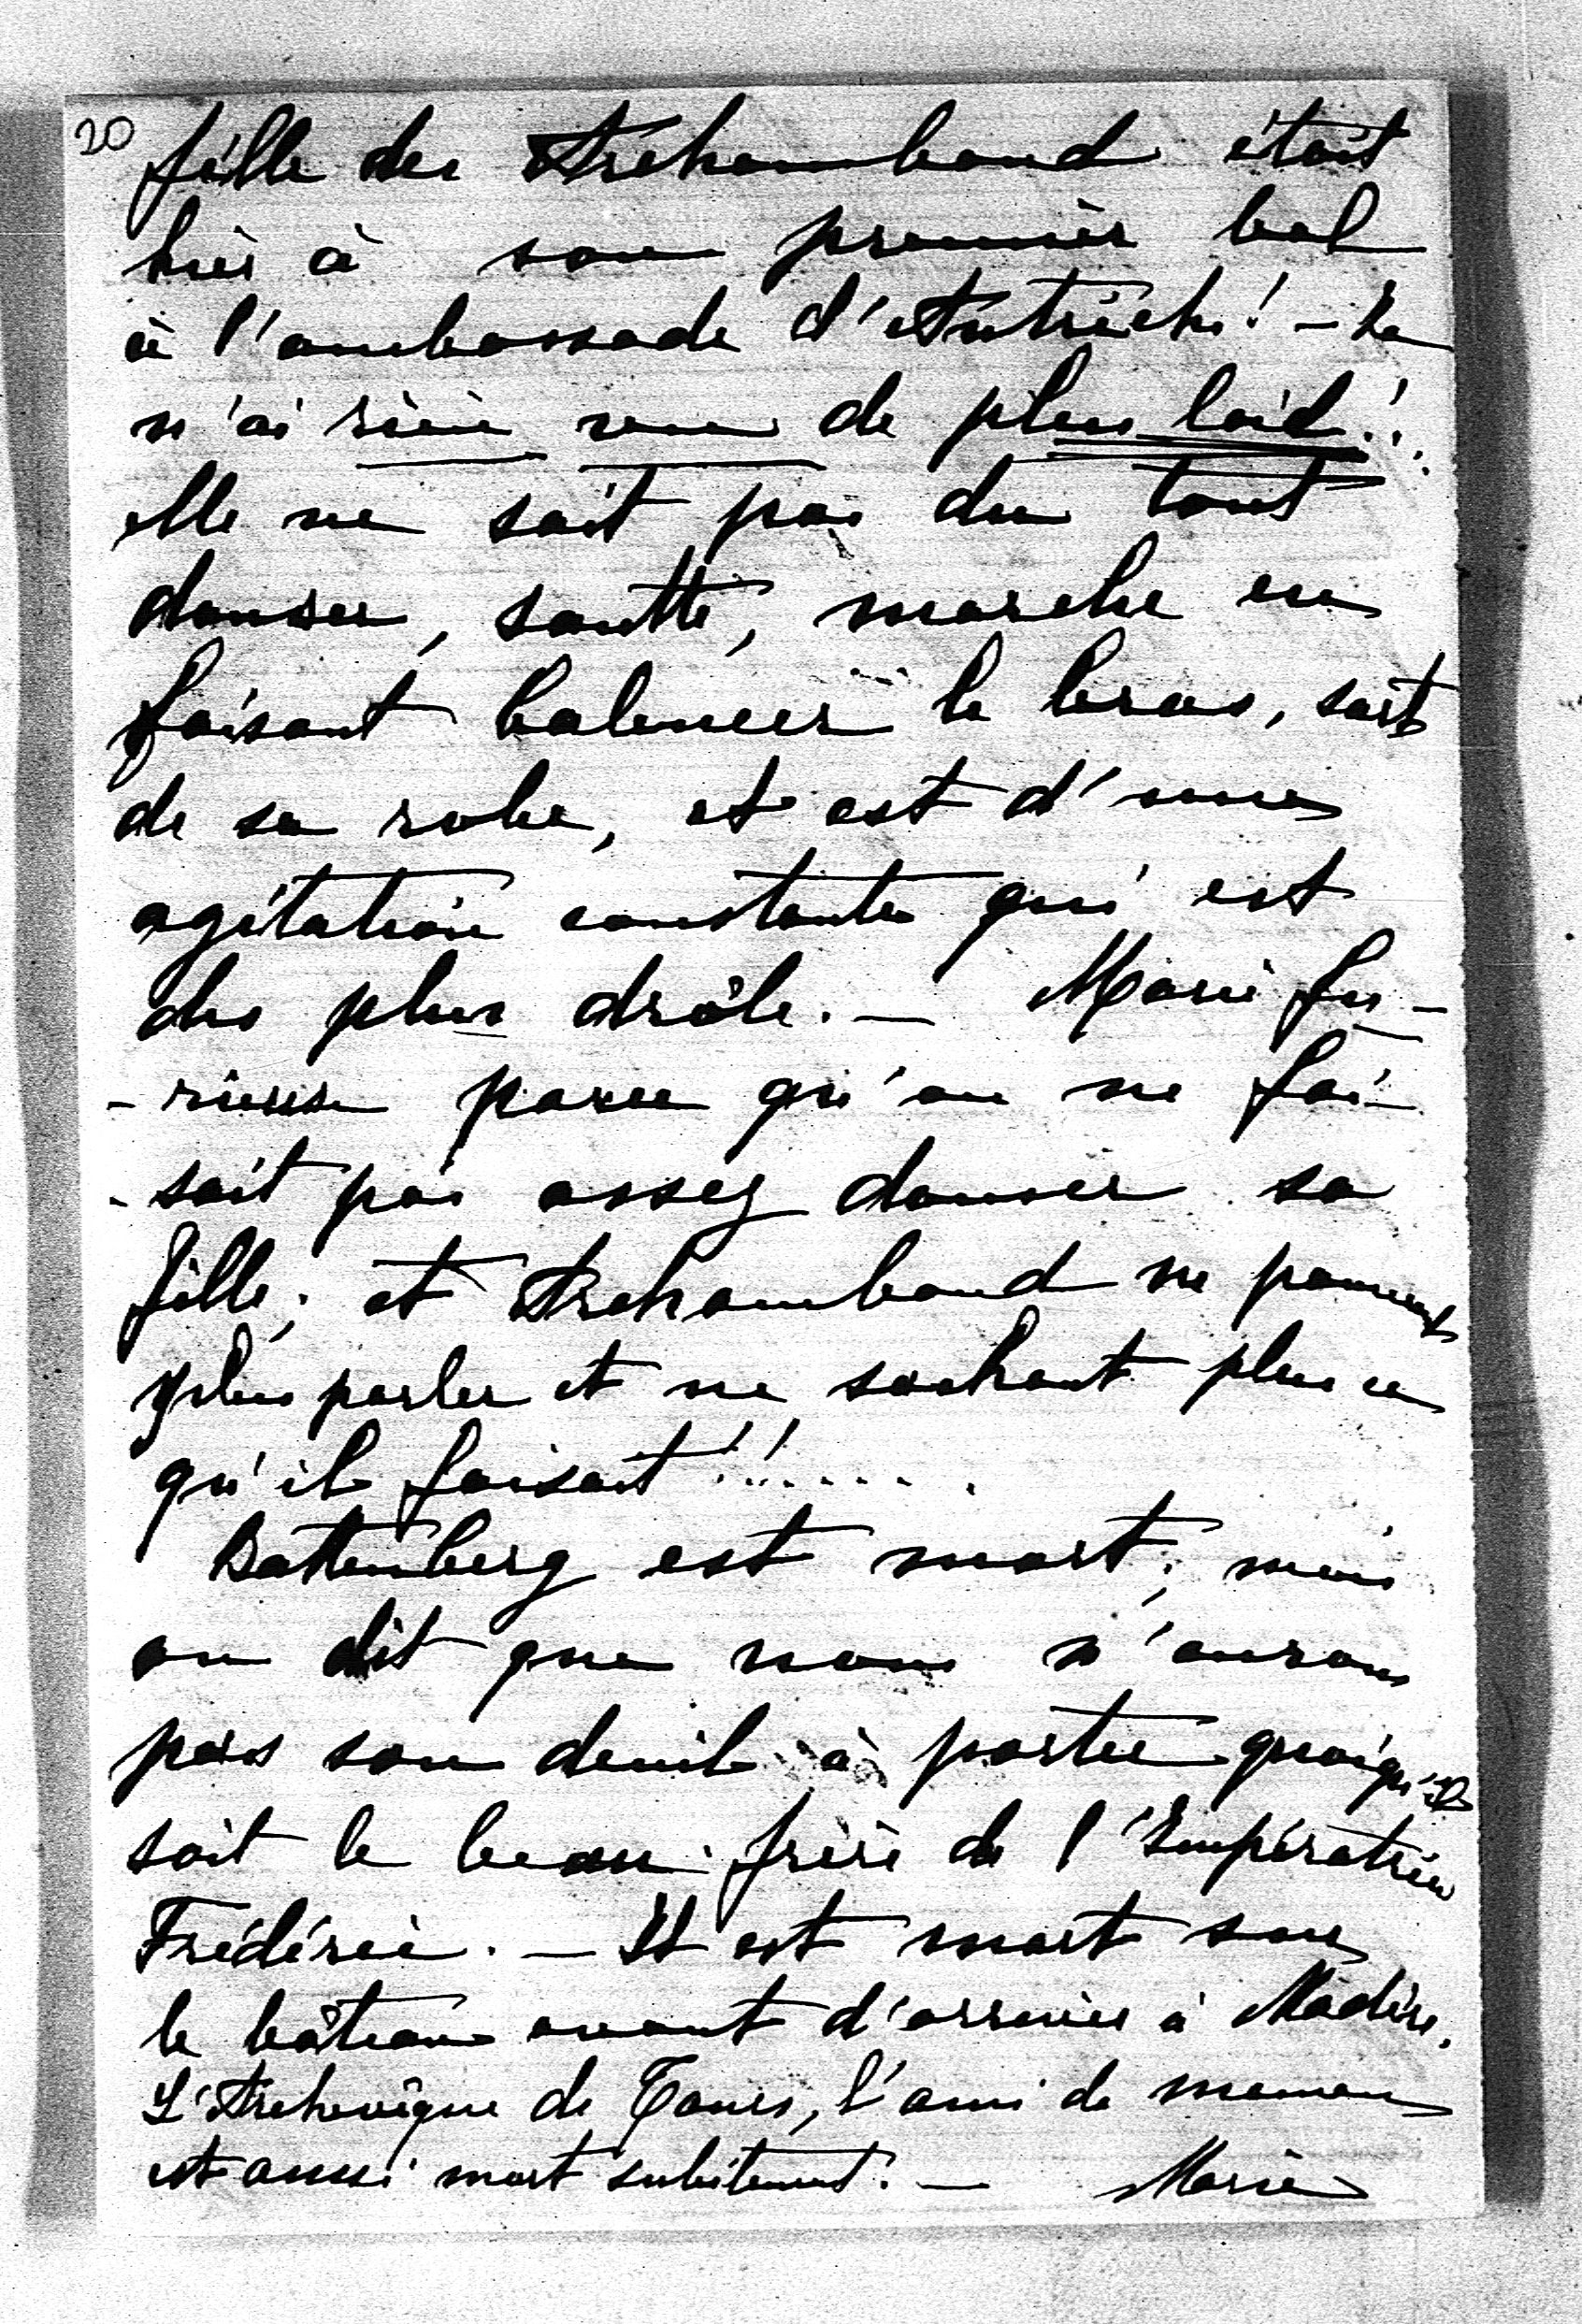 20
fille des Archambaud était
hier à son premier bal
à l'ambassade d'Autriche! – Je
n'ai rien vu de plus laid!!
elle ne sait pas du tout
danser, sautte, marche en
faisant balencer le bras, sort
de sa robe, et est d'une
agitation constante qui est
des plus drôle. – Marie fu-
-rieuse parce qu'on ne fai-
-sait pas assez danser sa
fille; et Archambaud ne pouvant
plus parler et ne sachant plus ce
qu'il faisait!!.......
Battenberg est mort; mais
on dit que nous n'aurons
pas son deuil à porter quoiqu'il
soit le beau-frère de l'Impératrice
Frédéric. – Il est mort sur
le bâteau avant d'arriver à Madère.
L'Archevêque de Tours, l'ami de maman
est aussi mort subitement. – Marie